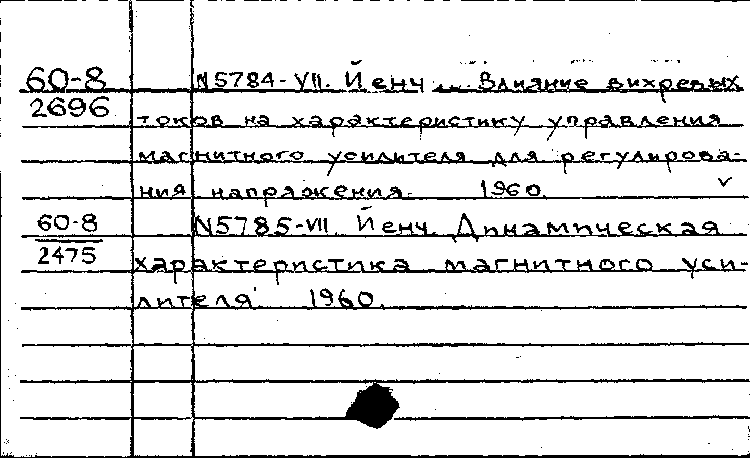 60-8 N5784-VII. Йенч ... Влияние вихревых
2696 токов на характеристику управления
магнитного усилителя для регулирова-
ния напряжения. 1960. v
60-8 N5785-VII. Йенч. Динамическая
2475 характеристика магнитного уси-
лителя. 1960.